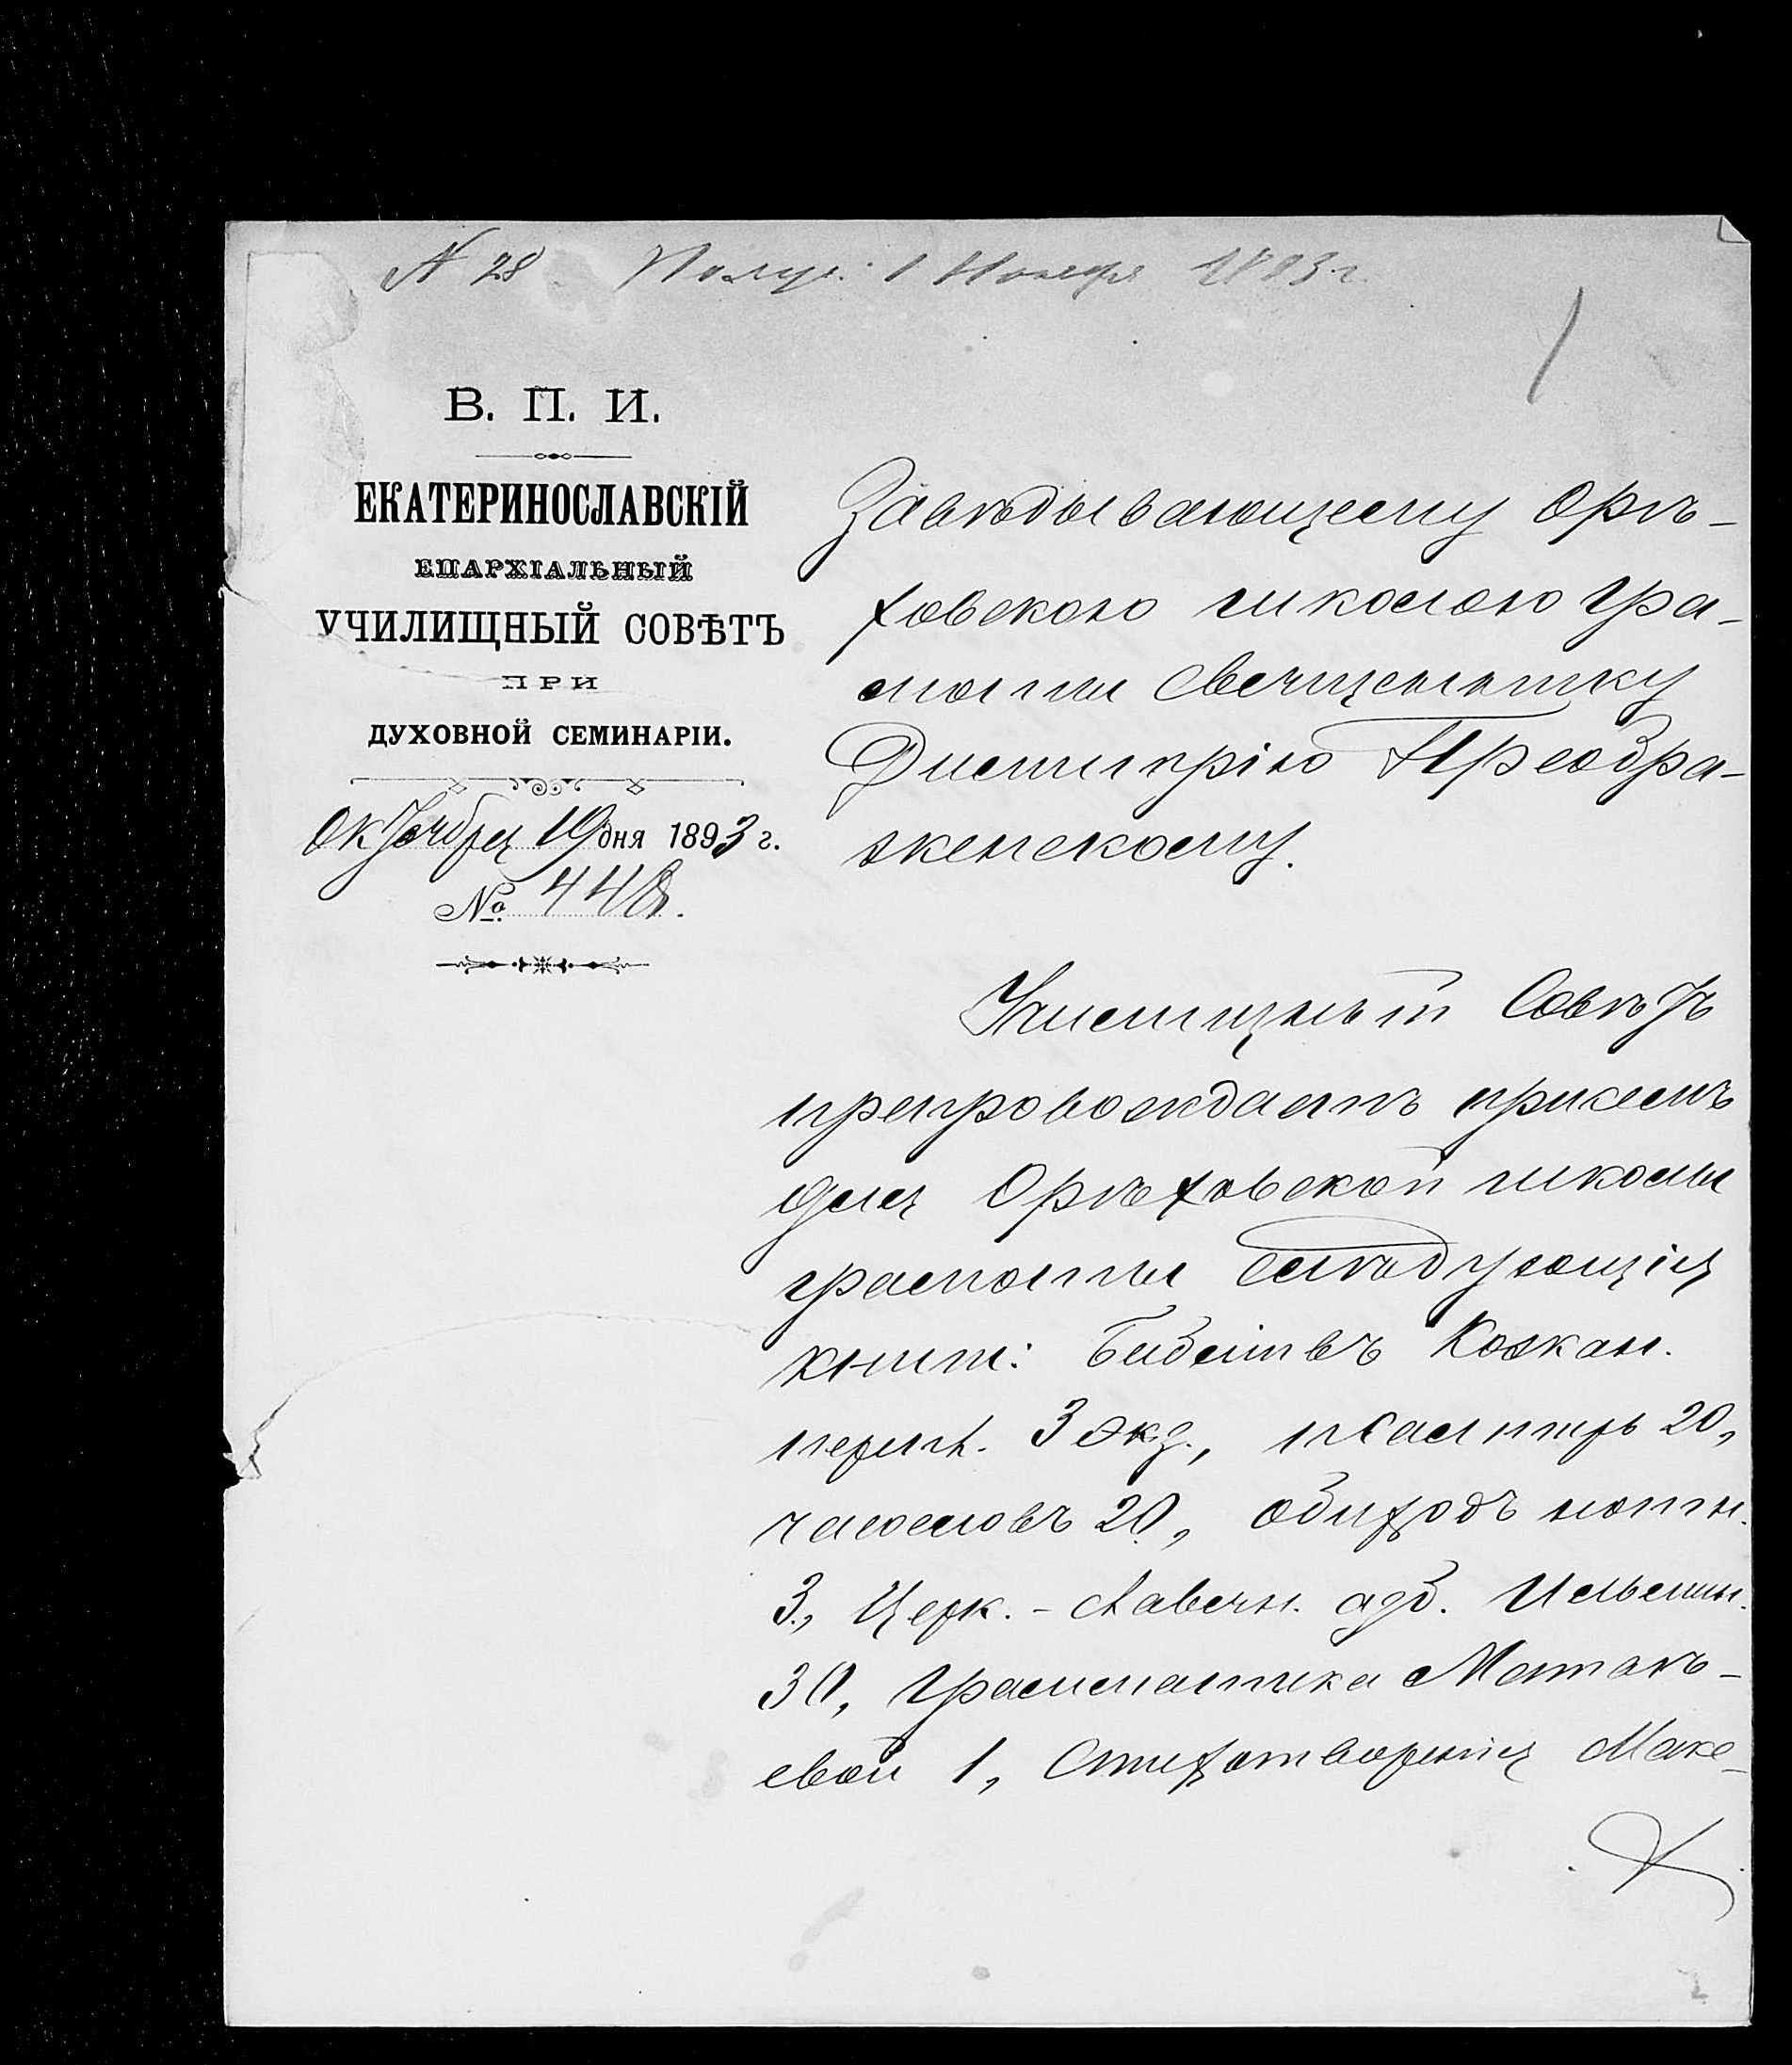 № 28 Получ. 1 Ноября 1893 г.
В. П. И.
ЕКАТЕРИНОСЛАВСКІЙ
ЕПАРХІАЛЬНЫЙ
УЧИЛИЩНЫЙ СОВѢТЪ
ПРИ
ДУХОВНОЙ СЕМИНАРІИ.
Октября 19 дня 1893 г.
№ 448.
Завѣдывающему Орѣ-
ховскою школою гра-
моты Священнику
Димитрію Преобра-
женскому.
Училищный Совѣтъ
препровождаетъ при семъ
для Орѣховской школы
грамоты слѣдующія
книги: Библiй въ Кожан.
перепл. 3 экз., псалтирь 20,
часослововъ 20, обиходъ нотн.
3, Церк.-Славян. азб. Ильмин.
30, Грамматика Матвѣ-
евой 1, Стихотворенія